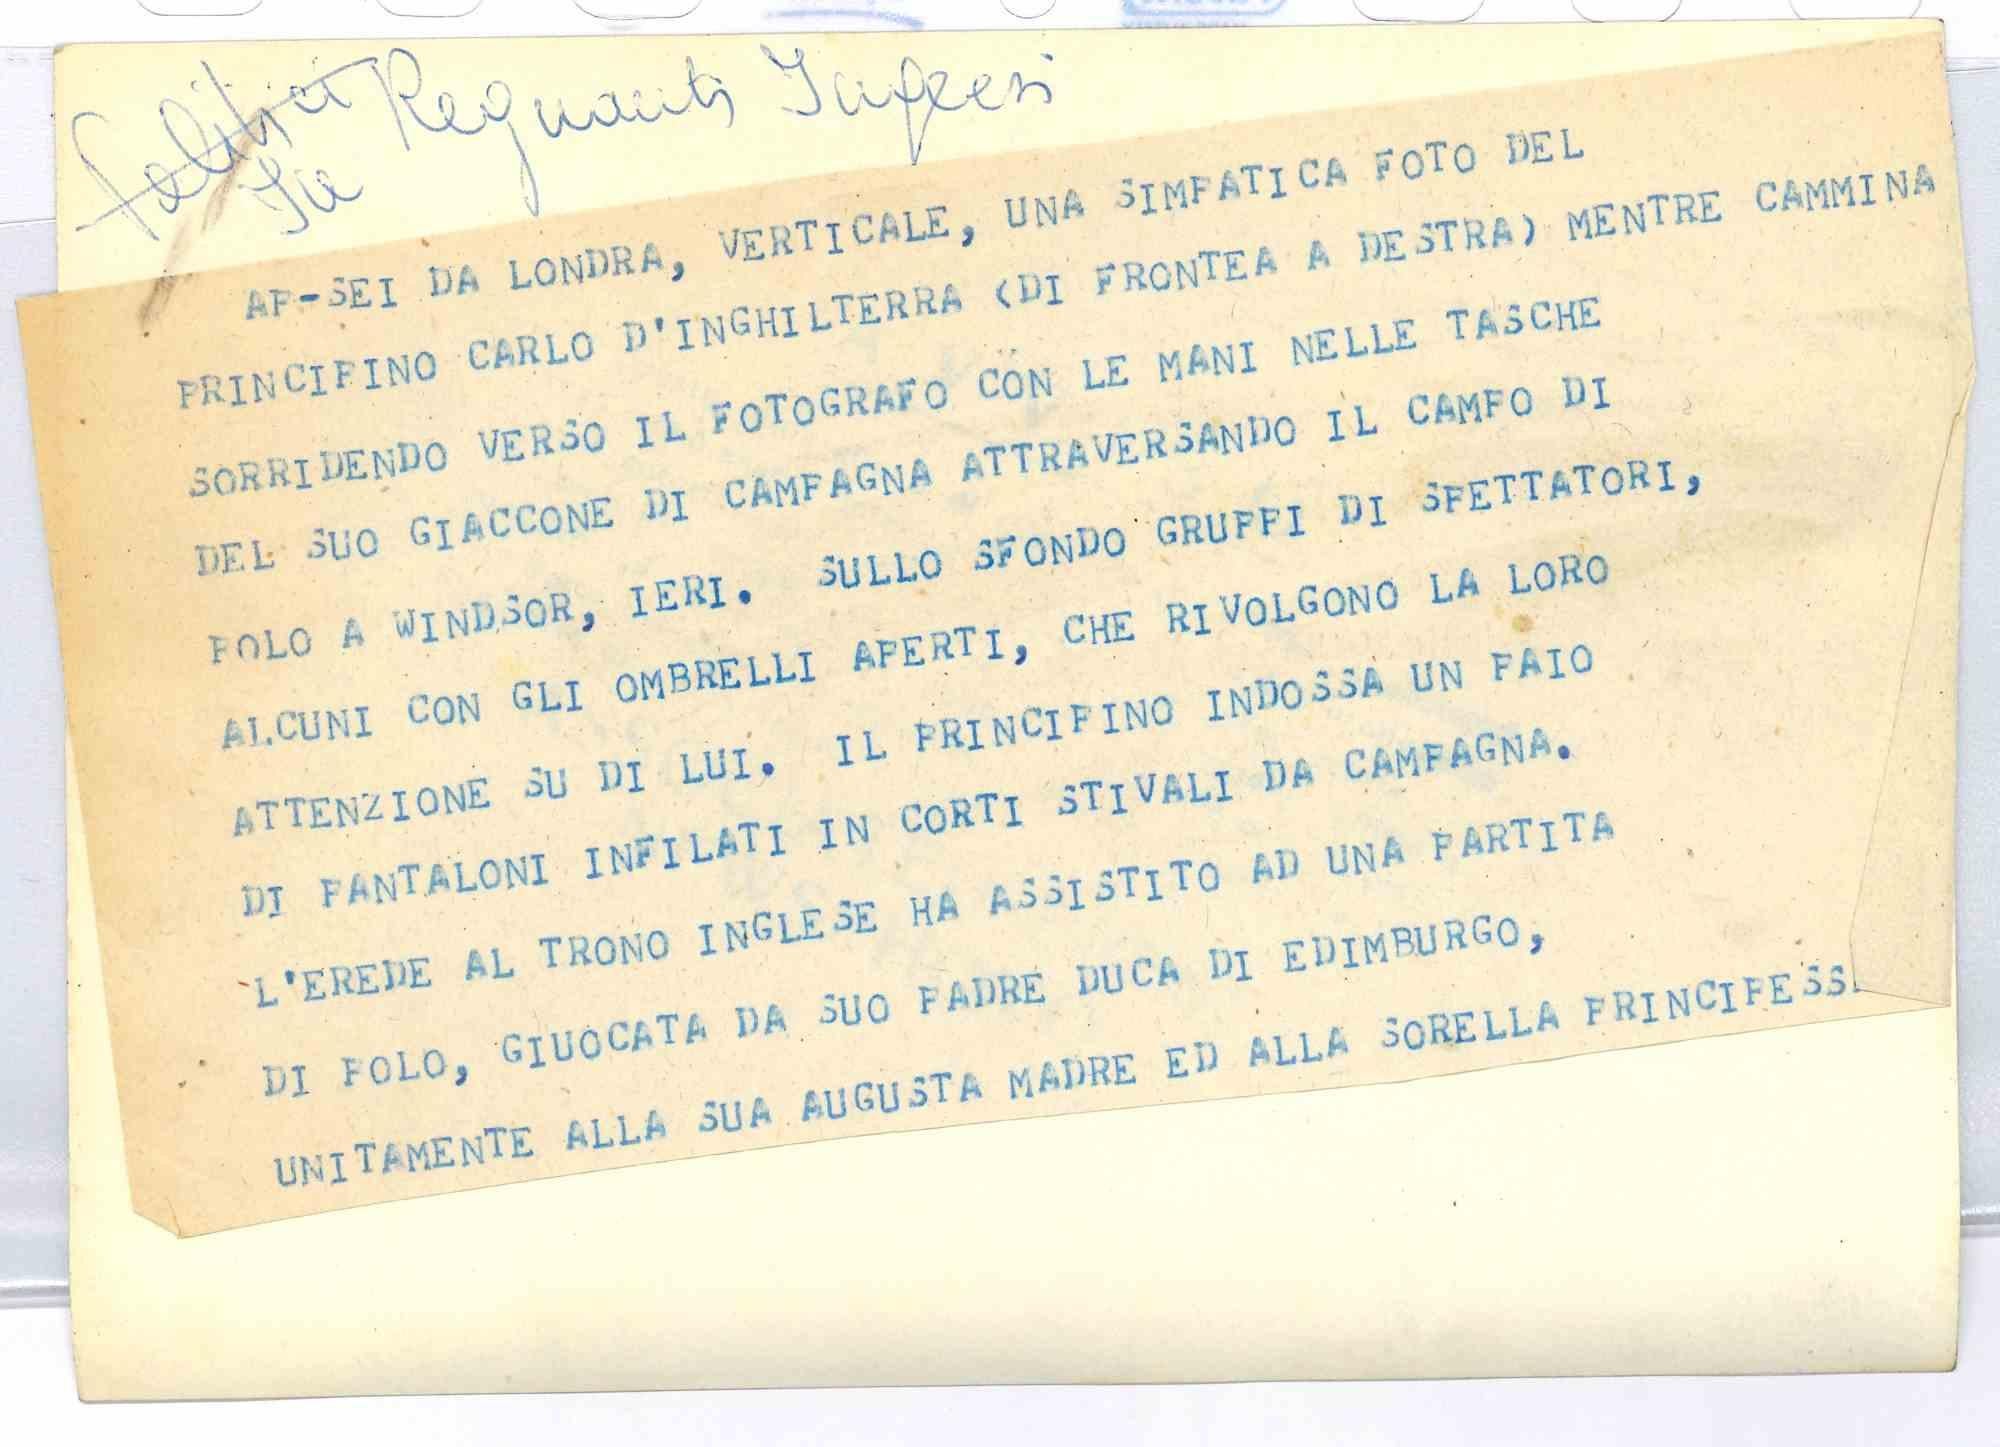 Politici Regnanti Inglesi
AP-SEI DA LONDRA, VERTICALE, UNA SIMPATICA FOTO DEL
PRINCIPINO CARLO D'INGHILTERRA (DI FRONTEA A DESTRA) MENTRE CAMMINA
SORRIDENDO VERSO IL FOTOGRAFO CON LE MANI NELLE TASCHE
DEL SUO GIACCONE DI CAMPAGNA ATTRAVERSANDO IL CAMPO DI
POLO A WINDSOR, IERI. SULLO SFONDO GRUPPI DI SPETTATORI,
ALCUNI CON GLI OMBRELLI APERTI, CHE RIVOLGONO LA LORO
ATTENZIONE SU DI LUI. IL PRINCIPINO INDOSSA UN PAIO
DI PANTALONI INFILATI IN CORTI STIVALI DA CAMPAGNA.
L'EREDE AL TRONO INGLESE HA ASSISTITO AD UNA PARTITA
DI POLO, GIUOCATA DA SUO PADRE DUCA DI EDIMBURGO,
UNITAMENTE ALLA SUA AUGUSTA MADRE ED ALLA SORELLA PRINCIPESS